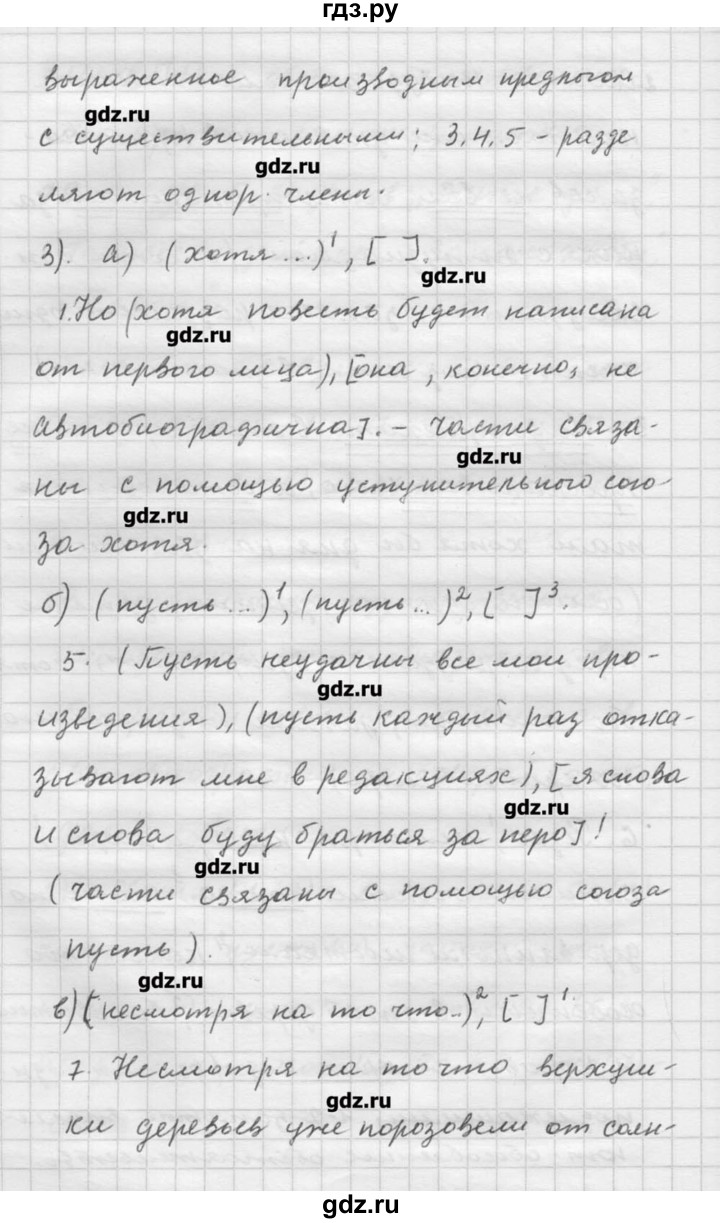 гдз.ру
выраженное производным предлогом
gdz.ru
с существительными; 3.4.5 - разде
gdz.ru
ляют однор. члены.
3). а) (хотя ...)¹, [ ].
gdz.ru
1. Но (хотя повесть будет написана
gdz.ru
от первого лица), [она, конечно, не
автобиографична]. - части связа-
gdz.ru
ны с помощью уступительного сою-
gdz.ru
за хотя.
б) (пусть ...)¹, (пусть ...)², [ ]³.
5. (Пусть неудачны все мои про-
gdz.ru
изведения), (пусть каждый раз отка-
зывают мне в редакциях), [я снова
gdz.ru
и снова буду браться за перо]!
gdz.ru
(части связаны с помощью союза
пусть).
gdz.ru
в) (несмотря на то что..)², [ ]¹.
7. Несмотря на то что верхуш-
gdz.ru
ки деревьев уже порозовели от солн-
gdz.ru